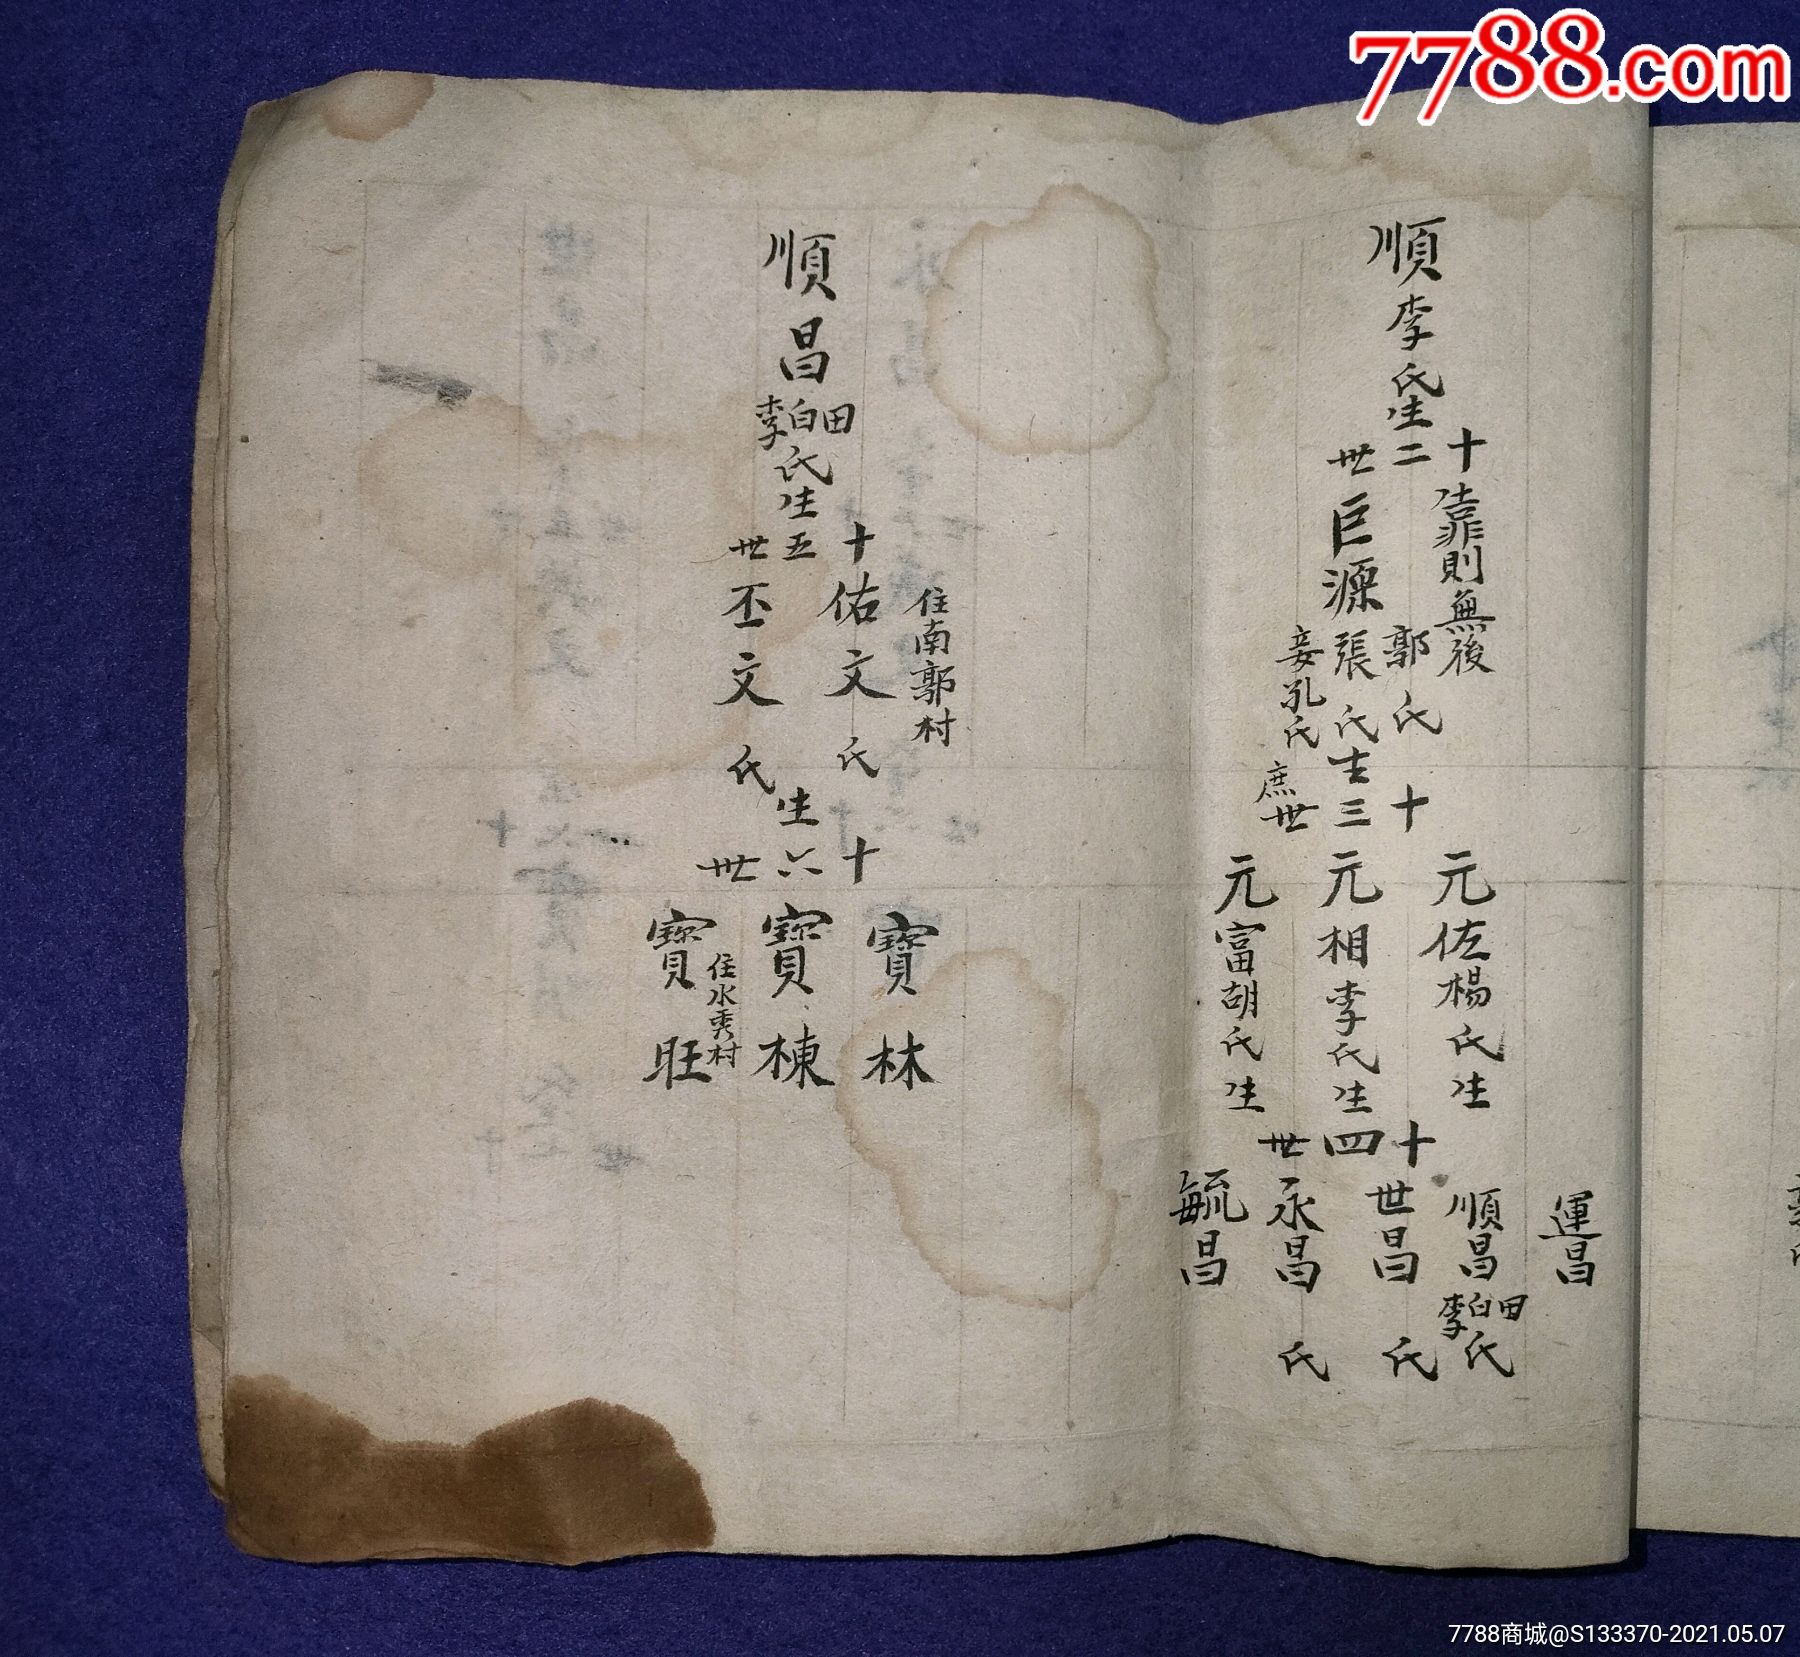 7788.com
順
李氏生
十二世
靠則無後
巨源
郭氏
張氏生
妾孔氏
庶
十三世
元佐楊氏生
元相李氏生
元富胡氏生
十四世
運昌
順昌
田
白
李
氏
世昌 氏
永昌 氏
毓昌
順昌
田
白
李
氏生
十五世
住南郭村
佑文 氏
丕文 氏
生
十六世
寶林
寶棟
住水秀村
寶旺
7788商城@S133370-2021.05.07